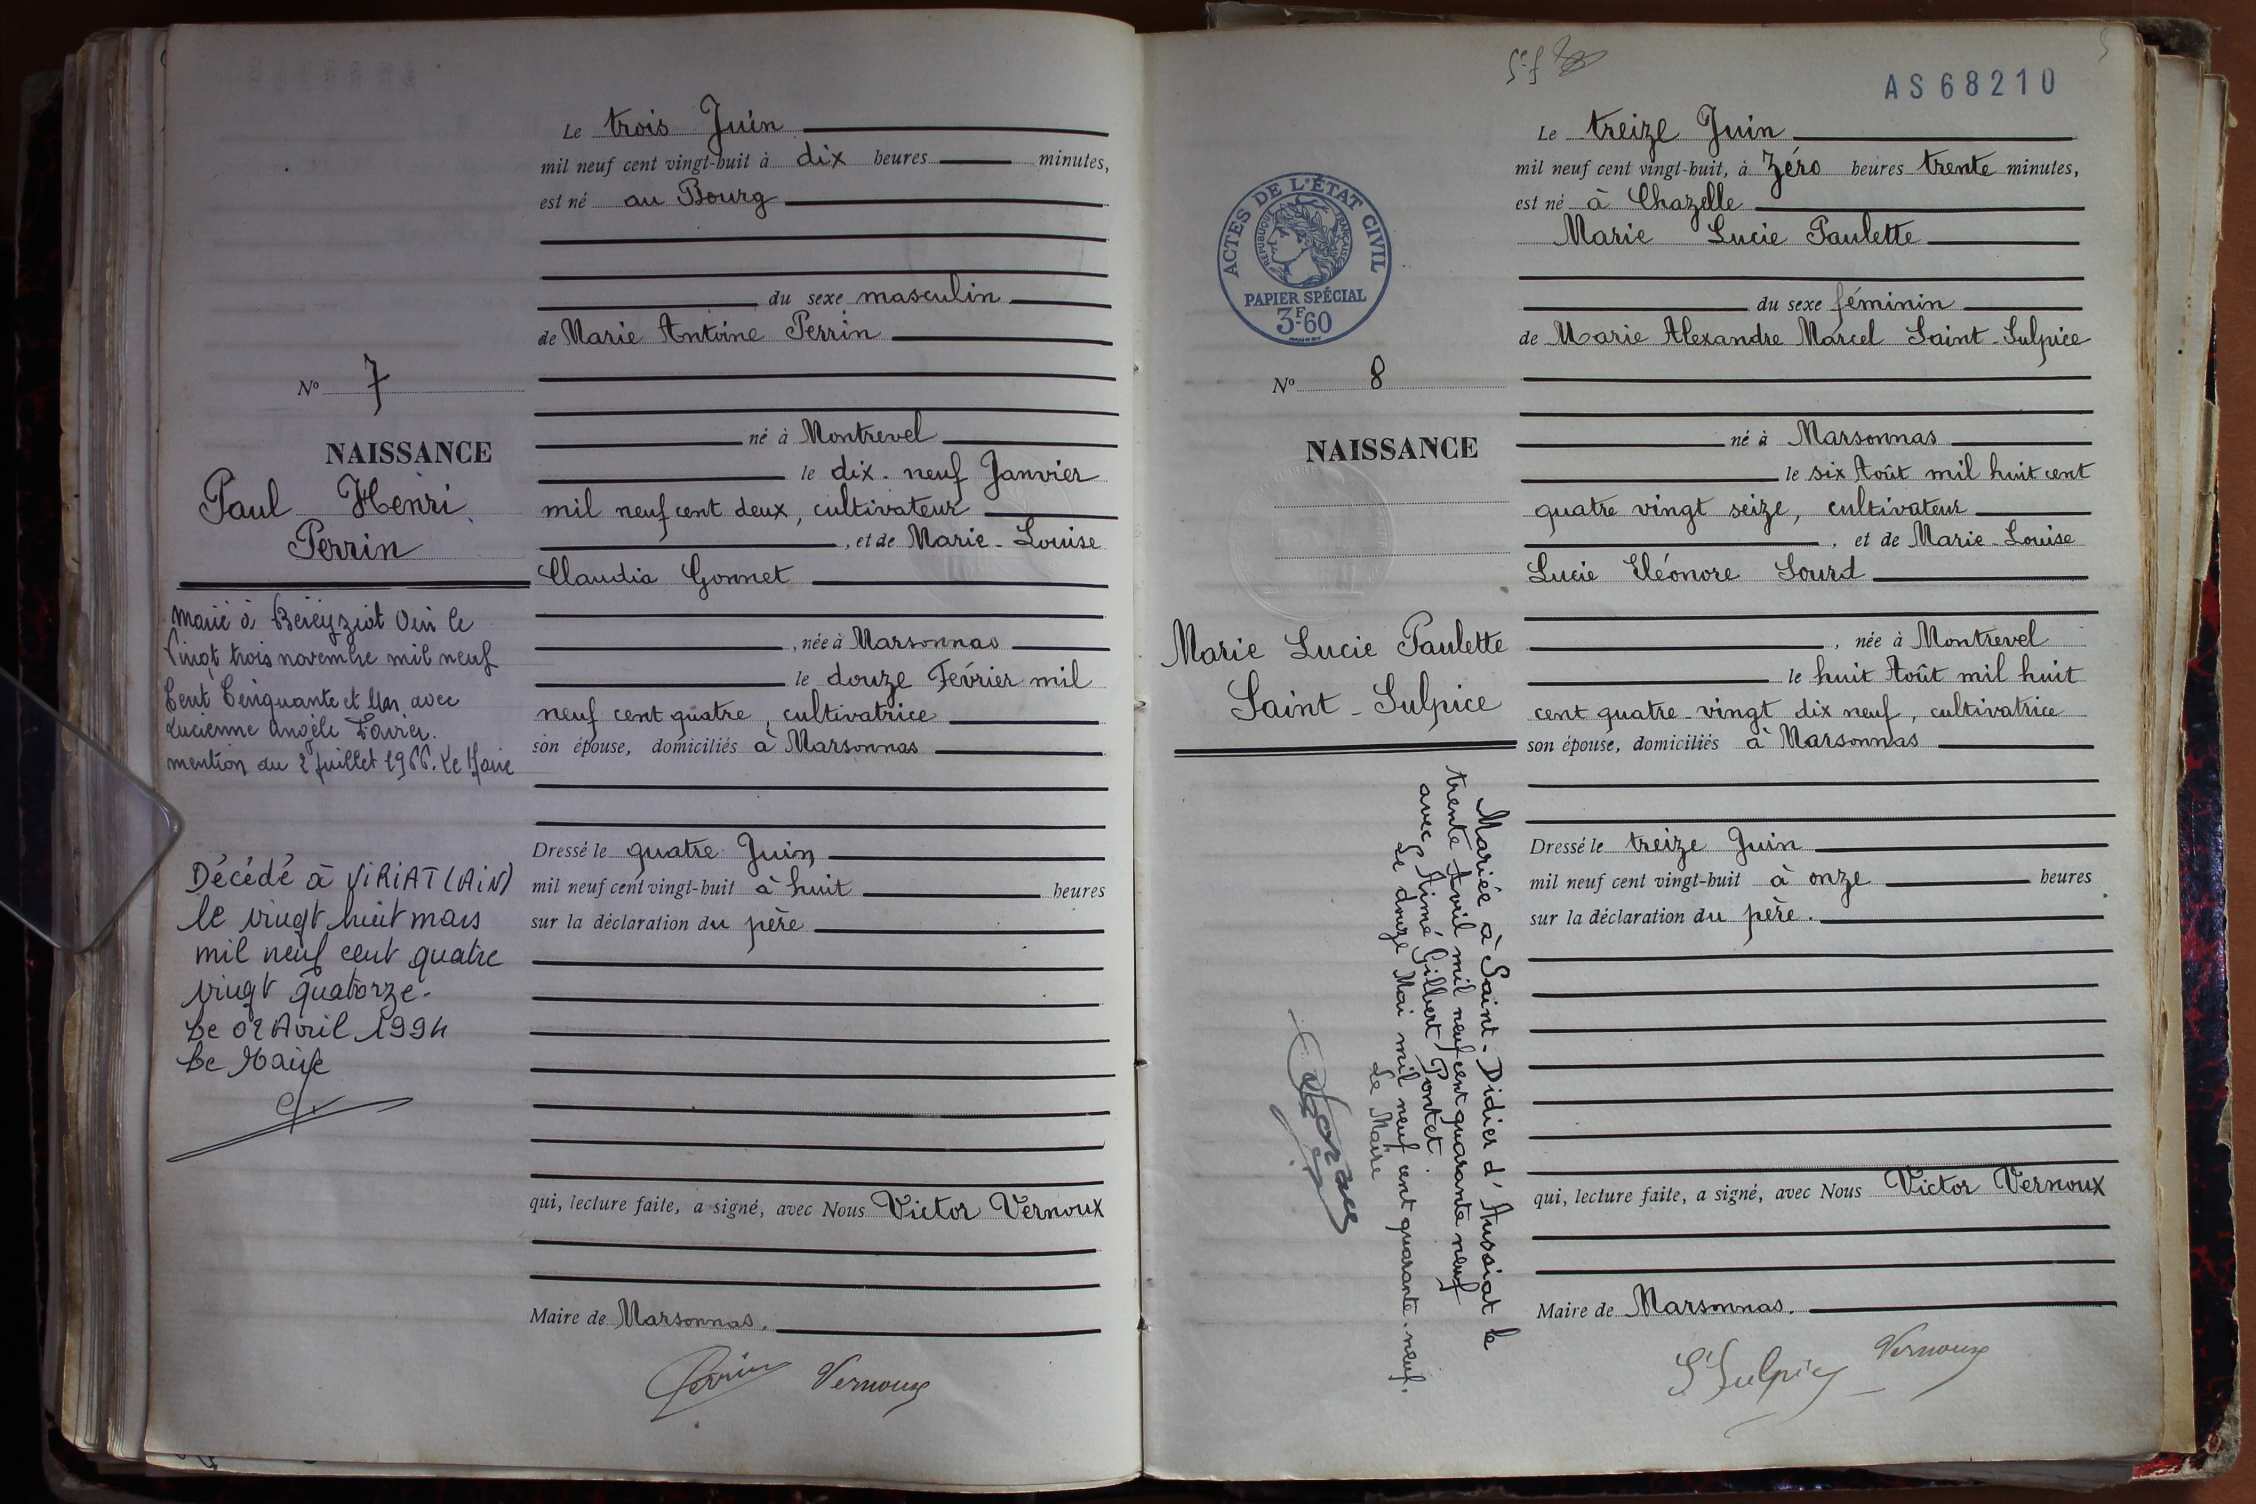 Le trois Juin
mil neuf cent vingt-huit à dix heures minutes,
est né au Bourg
du sexe masculin
de Marie Antoine Perrin
né à Montrevel
le dix-neuf Janvier
mil neuf cent deux, cultivateur
, et de Marie-Louise
Claudia Gonnet
, née à Marsonnas
le douze Février mil
neuf cent quatre, cultivatrice
son épouse, domiciliés à Marsonnas
Dressé le quatre Juin
mil neuf cent vingt-huit à huit heures
sur la déclaration du père
qui, lecture faite, a signé, avec Nous Victor Vernoux
Maire de Marsonnas.
Perrin Vernoux
No 7
NAISSANCE
Paul Henri
Perrin
Marié à Béréyziat Ain le
Vingt trois novembre mil neuf
Cent Cinquante et Un avec
Lucienne Angèle Favier.
mention du 2 juillet 1966. Le Maire
Décédé à VIRIAT (AIN)
le vingt huit mars
mil neuf cent quatre
vingt quatorze.
Le 02 Avril 1994
Le Maire
AS 68210
Le treize Juin
mil neuf cent vingt-huit, à Zéro heures trente minutes,
est né à Chazelle
Marie Lucie Paulette
du sexe féminin
de Marie Alexandre Marcel Saint-Sulpice
né à Marsonnas
le six Août mil huit cent
quatre vingt seize, cultivateur
, et de Marie-Louise
Lucie Eléonore Sourd
, née à Montrevel
le huit Août mil huit
cent quatre-vingt dix neuf, cultivatrice
son épouse, domiciliés à Marsonnas
Dressé le treize Juin
mil neuf cent vingt-huit à onze heures
sur la déclaration du père.
qui, lecture faite, a signé, avec Nous Victor Vernoux
Maire de Marsonnas.
St Sulpice Vernoux
ACTES DE L'ÉTAT CIVIL
RÉPUBLIQUE FRANÇAISE
PAPIER SPÉCIAL
3F60
No 8
NAISSANCE
Marie Lucie Paulette
Saint-Sulpice
Mariée à Saint-Didier d'Aussiat le
trente Avril mil neuf cent quarante neuf
avec Aimé Gilbert Pontet.
Le douze Mai mil neuf cent quarante-neuf.
Le Maire